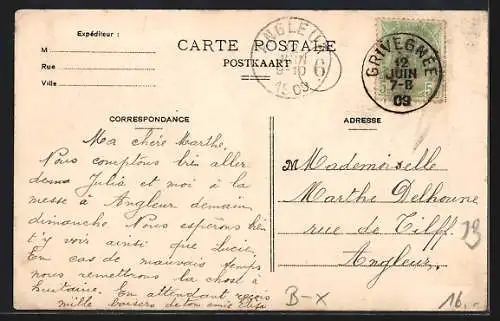 Expéditeur :
M
Rue
Ville
CARTE POSTALE
POSTKAART
ANGLEUR
JUIN
9-10
6
1909
GRIVEGNÉE
12
JUIN
7-8
09
CORRESPONDANCE
ADRESSE
Ma chère Marthe,
Nous comptons bien aller
Julia et moi à la
messe à Angleur demain
dimanche. Nous espérons bien
t'y voir ainsi que Lucie.
En cas de mauvais temps
nous remettrons la chose à
huitaine. En attendant reçois
mille baisers de ton amie
Mademoiselle
Marthe Delhoune
rue de Tilff.
Angleur.
B-X
16.-